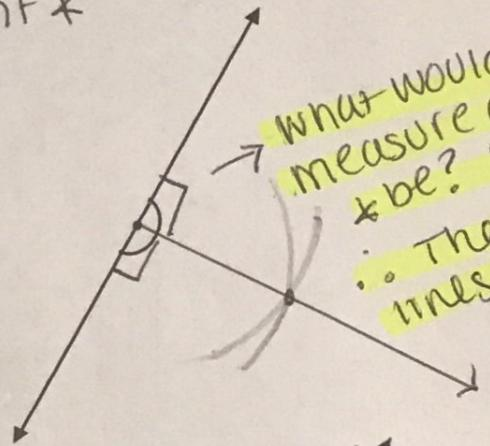 what would
measure
* be?
∴ The
lines